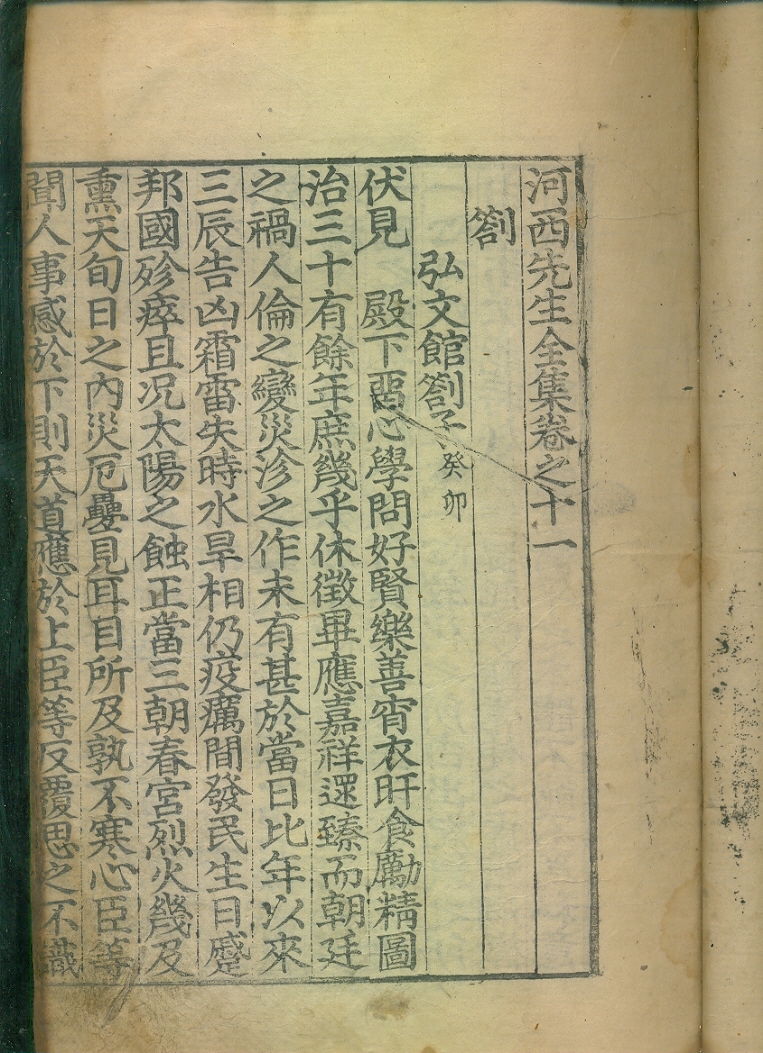 河西先生全集卷之十一
劄
弘文館劄子癸卯
伏見 殿下惡心學問好賢樂善宵衣旰食勵精圖
治三十有餘年庶幾乎休徵畢應嘉祥遝臻而朝廷
之禍人倫之變災沴之作未有甚於當日比年以來
三辰告凶霜雷失時水旱相仍疫癘間發民生日蹙
邦國殄瘁且況太陽之蝕正當三朝春宮烈火幾及
熏天旬日之內災厄疊見耳目所及孰不寒心臣等
聞人事感於下則天道應於上臣等反覆思之不識